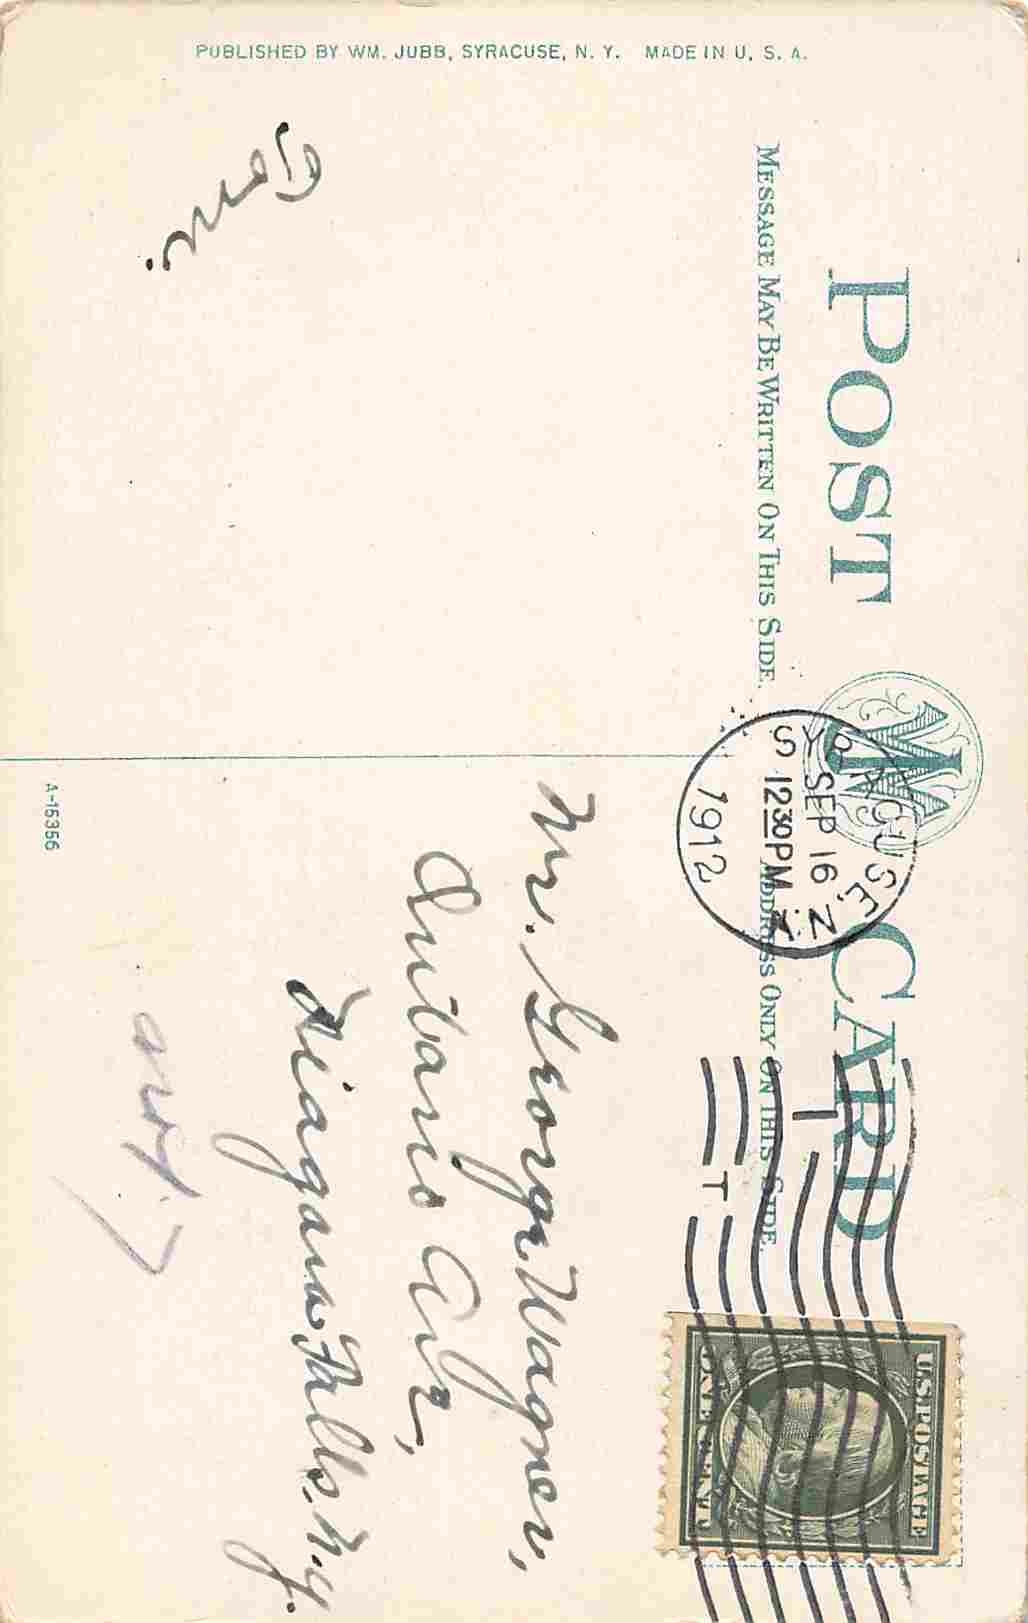 PUBLISHED BY WM. JUBB, SYRACUSE, N. Y. MADE IN U. S. A.
POST CARD
MESSAGE MAY BE WRITTEN ON THIS SIDE.
ADDRESS ONLY ON THIS SIDE.
SYRACUSE, N.Y.
SEP 16
12 30 PM
1912
T
U.S. POSTAGE
ONE CENT
Mr. George Wagner,
Ontario Ave,
Niagara Falls, N.Y.
A-15356